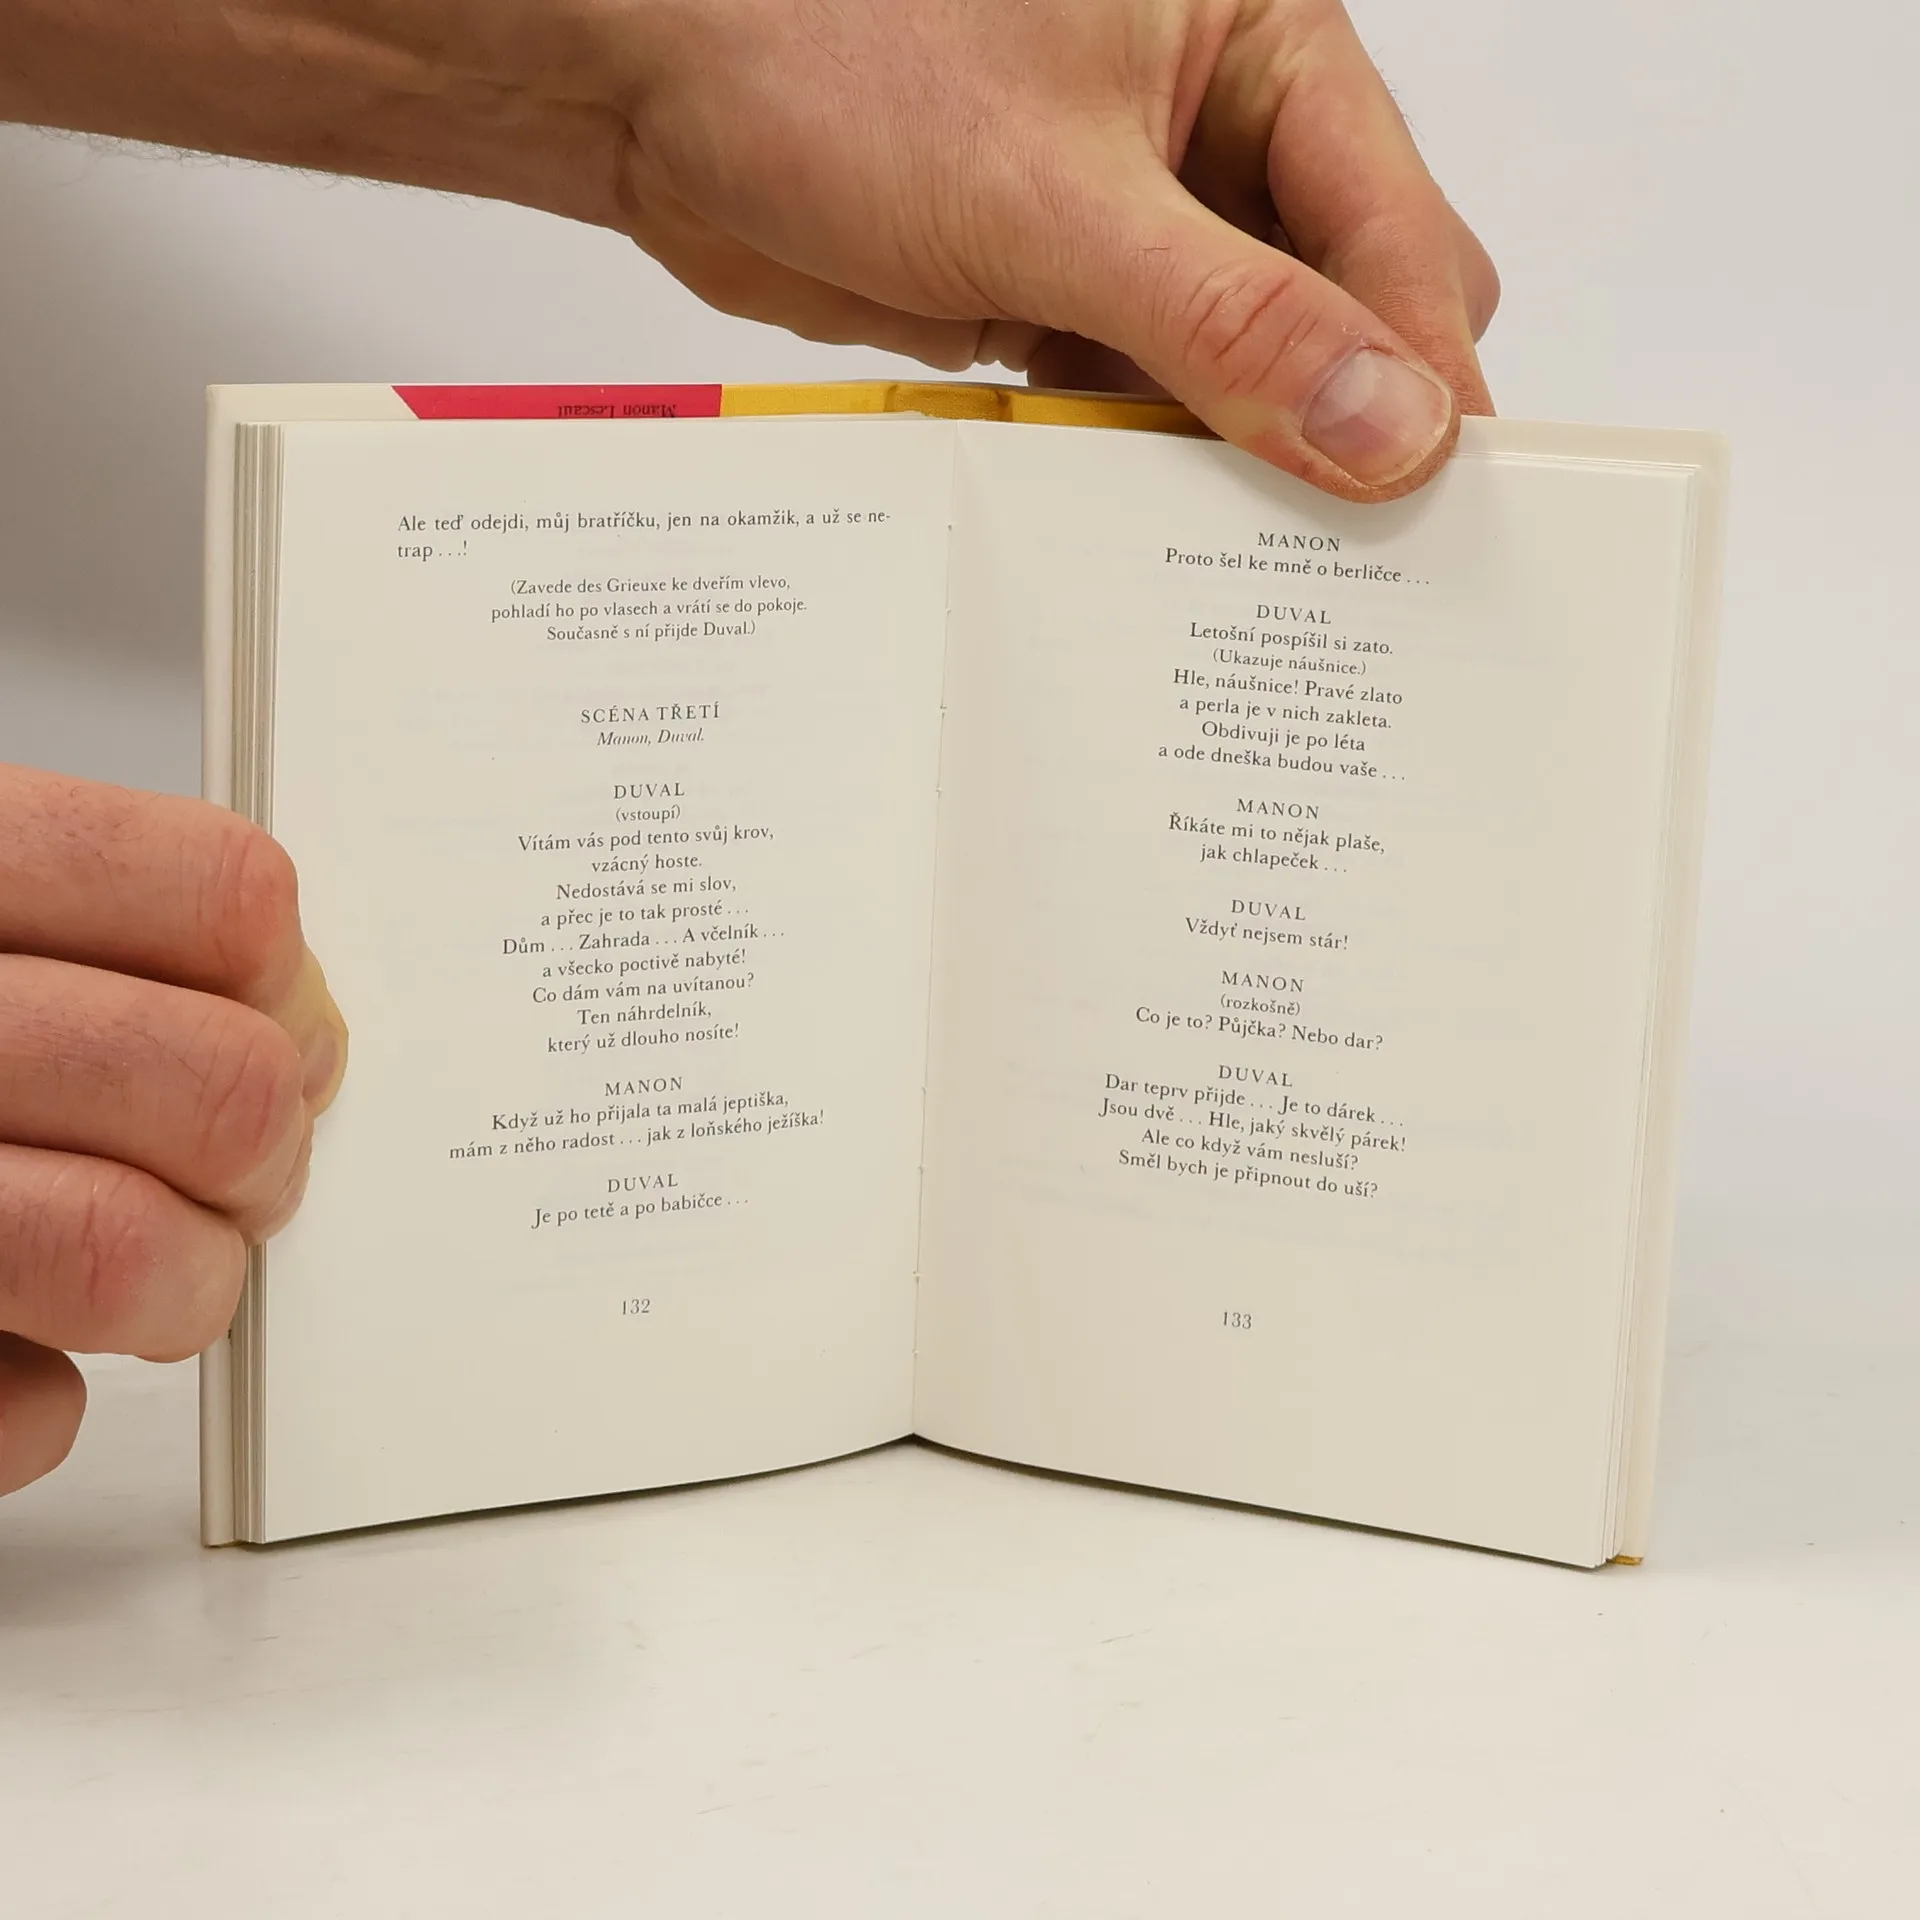 Manon Lescaut
Ale teď odejdi, můj bratříčku, jen na okamžik, a už se ne-
trap . . .!
(Zavede des Grieuxe ke dveřím vlevo,
pohladí ho po vlasech a vrátí se do pokoje.
Současně s ní přijde Duval.)
SCÉNA TŘETÍ
Manon, Duval.
DUVAL
(vstoupí)
Vítám vás pod tento svůj krov,
vzácný hoste.
Nedostává se mi slov,
a přec je to tak prosté . . .
Dům . . . Zahrada . . . A včelník . . .
a všecko poctivě nabyté!
Co dám vám na uvítanou?
Ten náhrdelník,
který už dlouho nosíte!
MANON
Když už ho přijala ta malá jeptiška,
mám z něho radost . . . jak z loňského ježíška!
DUVAL
Je po tetě a po babičce . . .
132
MANON
Proto šel ke mně o berličce . . .
DUVAL
Letošní pospíšil si zato.
(Ukazuje náušnice.)
Hle, náušnice! Pravé zlato
a perla je v nich zakleta.
Obdivuji je po léta
a ode dneška budou vaše . . .
MANON
Říkáte mi to nějak plaše,
jak chlapeček . . .
DUVAL
Vždyť nejsem stár!
MANON
(rozkošně)
Co je to? Půjčka? Nebo dar?
DUVAL
Dar teprv přijde . . . Je to dárek . . .
Jsou dvě . . . Hle, jaký skvělý párek!
Ale co když vám nesluší?
Směl bych je připnout do uší?
133